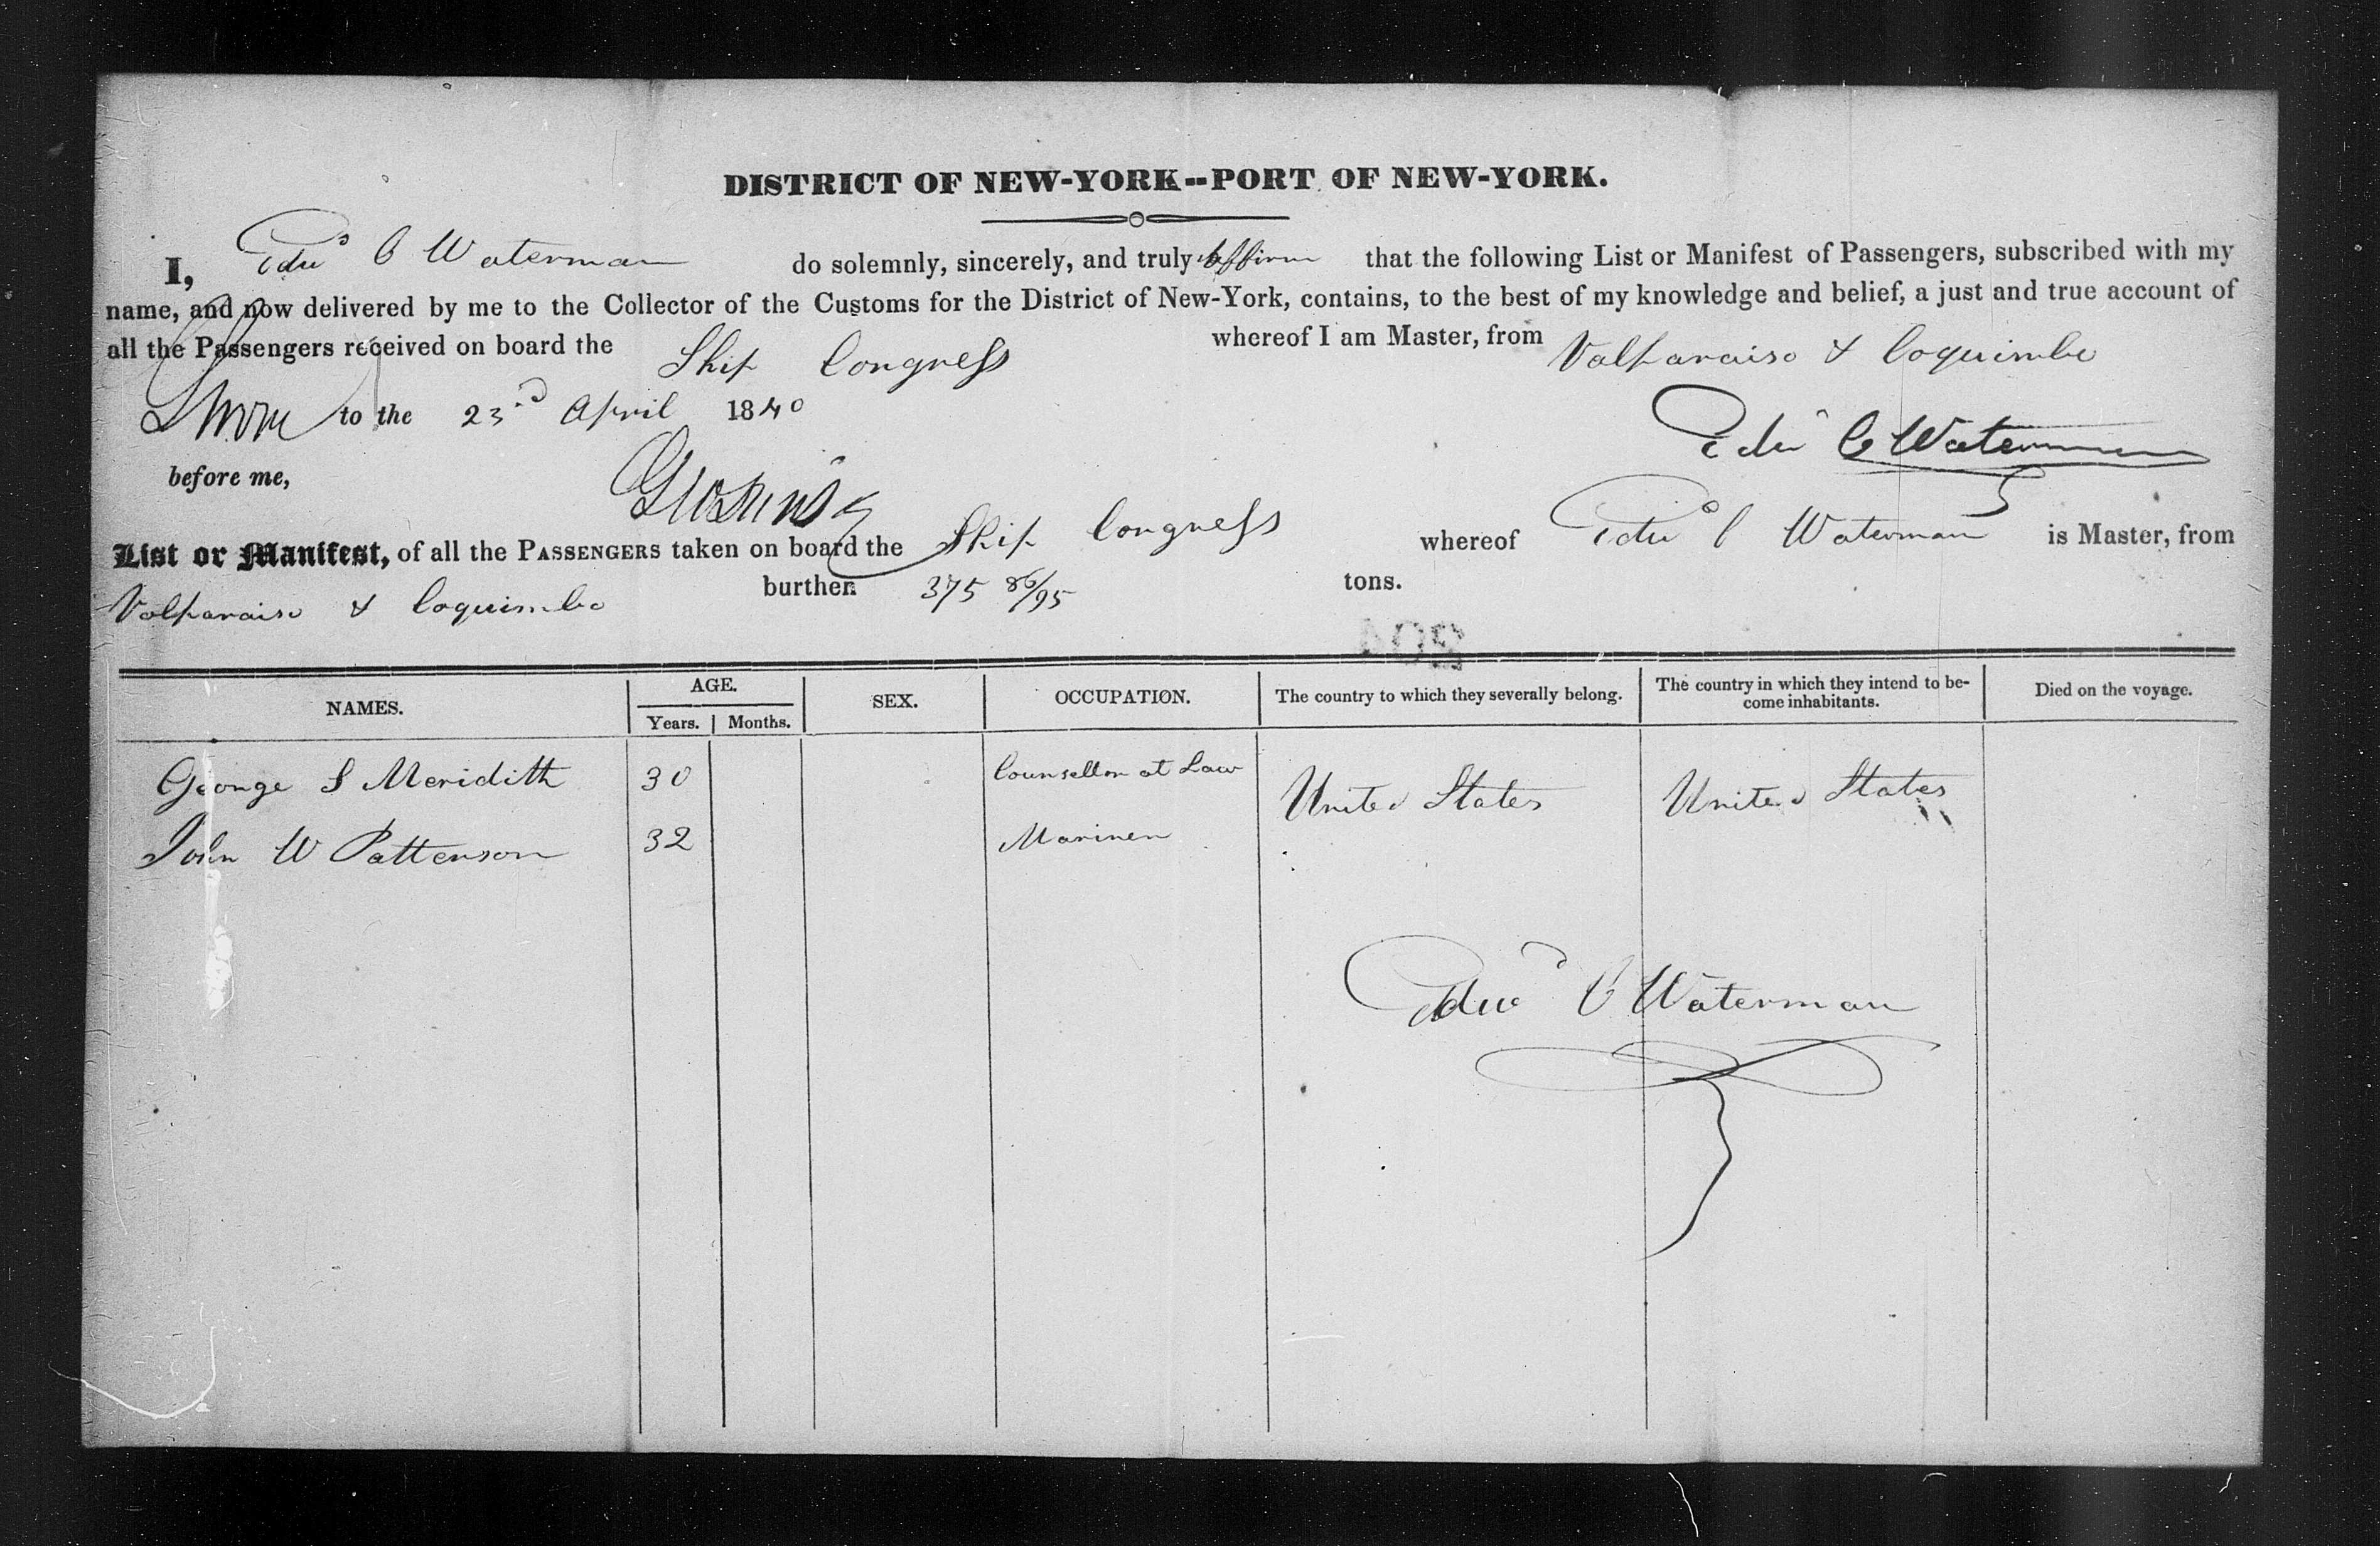 DISTRICT OF NEW-YORK--PORT OF NEW-YORK.
I, Edwd C Waterman do solemnly, sincerely, and truly affirm that the following List or Manifest of Passengers, subscribed with my
name, and now delivered by me to the Collector of the Customs for the District of New-York, contains, to the best of my knowledge and belief, a just and true account of
all the Passengers received on board the Ship Congress whereof I am Master, from Valparaiso & Coquimbo
Sworn to the 23rd April 1840
Edwd C Waterman
before me,
List or Manifest, of all the PASSENGERS taken on board the Ship Congress whereof Edwd C Waterman is Master, from
Valparaiso & Coquimbo burthen 375 86/95 tons.
204
NAMES. AGE. SEX. OCCUPATION. The country to which they severally belong. The country in which they intend to be-
come inhabitants. Died on the voyage.
Years. Months.
George S Meridith 30 Counsellor at Law United States United States
John W Patterson 32 Mariner
Edwd C Waterman